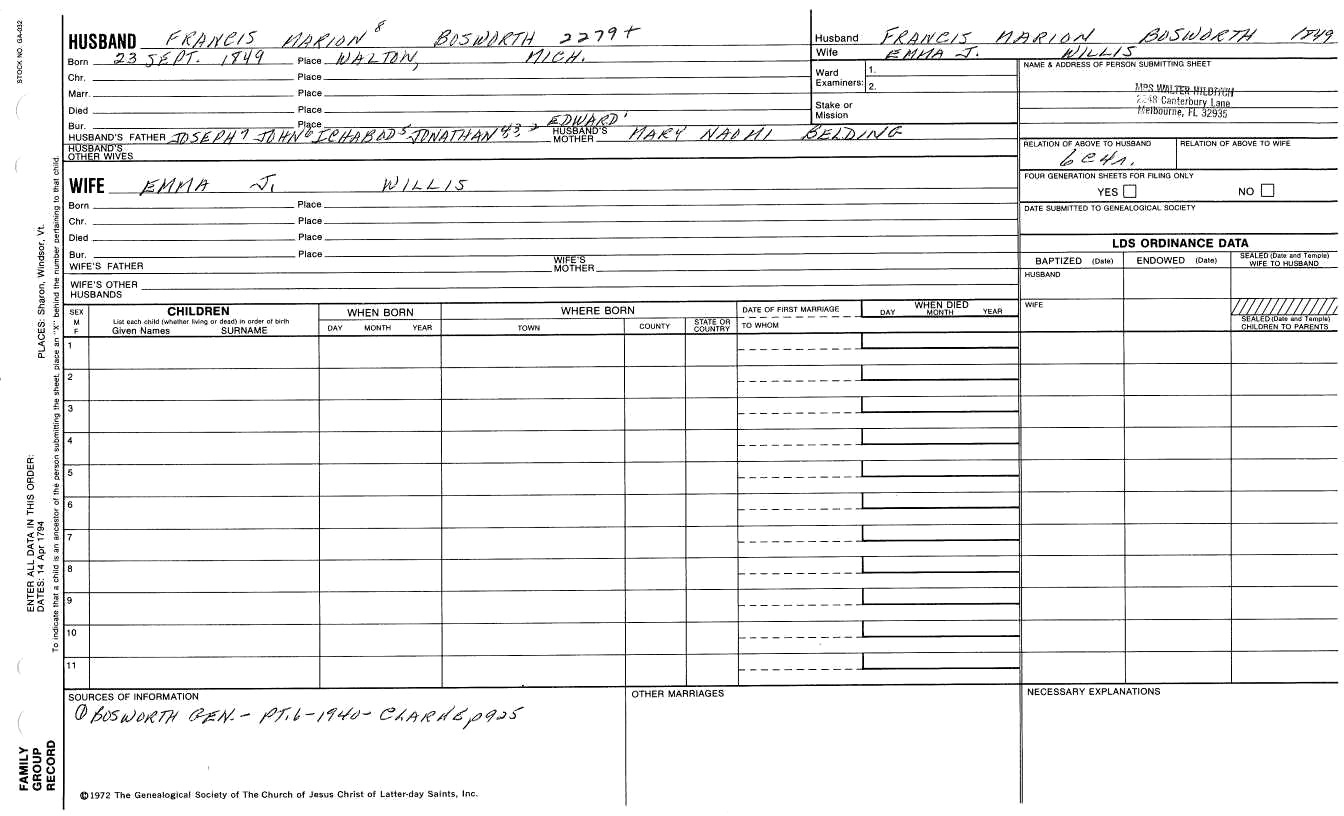 STOCK NO. GA-032
HUSBAND FRANCIS MARION⁸ BOSWORTH 2279+
Born 23 SEPT. 1849 Place WALTON, MICH.
Chr. Place
Marr. Place
Died Place
Bur. Place
HUSBAND'S FATHER JOSEPH⁷ JOHN⁶ ICHABOD⁵ JONATHAN⁴,³,² EDWARD¹ HUSBAND'S MOTHER MARY NAOMI BELDING
HUSBAND'S OTHER WIVES
WIFE EMMA J. WILLIS
Born Place
Chr. Place
Died Place
Bur. Place
WIFE'S FATHER WIFE'S MOTHER
WIFE'S OTHER HUSBANDS
Husband FRANCIS MARION BOSWORTH 1849
Wife EMMA J. WILLIS
Ward Examiners: 1.
2.
Stake or Mission
NAME & ADDRESS OF PERSON SUBMITTING SHEET
MRS WALTER HILDITCH
2248 Canterbury Lane
Melbourne, FL 32935
RELATION OF ABOVE TO HUSBAND RELATION OF ABOVE TO WIFE
6C4r.
FOUR GENERATION SHEETS FOR FILING ONLY
YES NO
DATE SUBMITTED TO GENEALOGICAL SOCIETY
LDS ORDINANCE DATA
BAPTIZED (Date) ENDOWED (Date) SEALED (Date and Temple) WIFE TO HUSBAND
HUSBAND
WIFE
SEALED (Date and Temple) CHILDREN TO PARENTS
SEX M F CHILDREN WHEN BORN WHERE BORN DATE OF FIRST MARRIAGE WHEN DIED
List each child (whether living or dead) in order of birth
Given Names SURNAME DAY MONTH YEAR TOWN COUNTY STATE OR COUNTRY TO WHOM DAY MONTH YEAR
1
2
3
4
5
6
7
8
9
10
11
SOURCES OF INFORMATION OTHER MARRIAGES NECESSARY EXPLANATIONS
① BOSWORTH GEN. - PT. 6 - 1940 - CLARKE p925
©1972 The Genealogical Society of The Church of Jesus Christ of Latter-day Saints, Inc.
ENTER ALL DATA IN THIS ORDER:
DATES: 14 Apr 1794 PLACES: Sharon, Windsor, Vt.
To indicate that a child is an ancestor of the person submitting the sheet, place an "X" behind the number pertaining to that child.
FAMILY
GROUP
RECORD